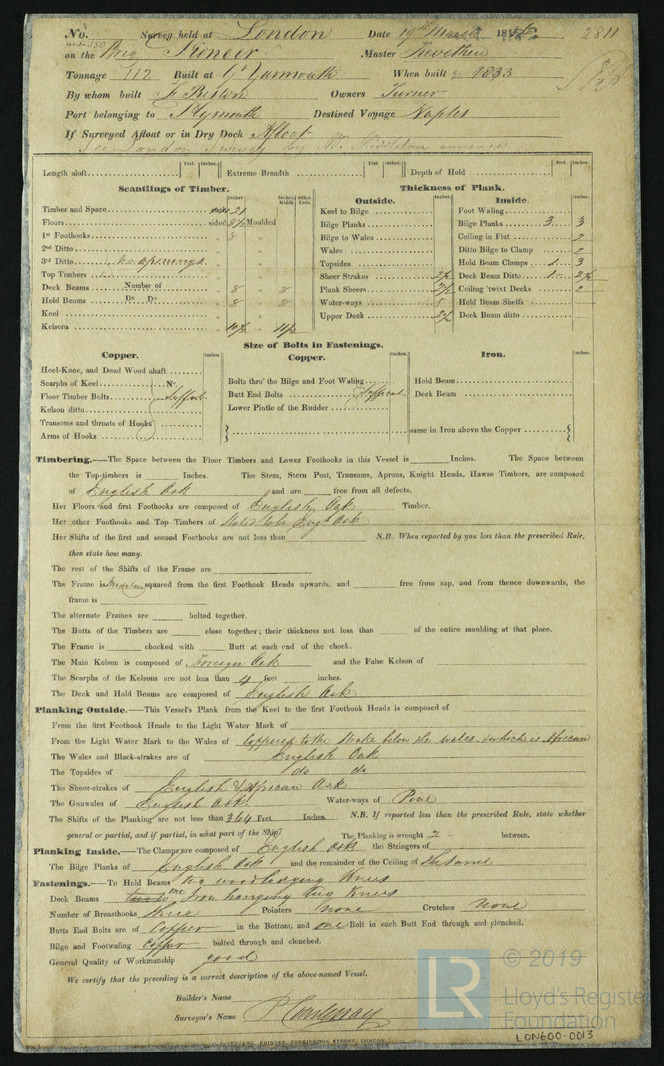 No. Survey held at London Date 19th March 1836 2811
on the Brig Pioneer Master Trevethen
Tonnage 112 Built at Gt Yarmouth When built 1833
By whom built F. Preston Owners Turner
Port belonging to Plymouth Destined Voyage Naples
If Surveyed Afloat or in Dry Dock Afloat
See London Survey by Mr. Middleton annexed
Length aloft Feet. Inches. Extreme Breadth Feet. Inches. Depth of Hold Feet. Inches.
Scantlings of Timber. Thickness of Plank.
Inches Inches. Middle Inches. Ends
Outside. Inches. Inside. Inches.
Timber and Space 21
Floors sided 8½ Moulded
1st Foothooks
2nd Ditto
3rd Ditto no openings.
Top Timbers
Deck Beams Number of 8 8
Hold Beams Do. Do. 8 8
Keel
Kelsons 10½ 11½
Keel to Bilge
Bilge Planks
Bilge to Wales
Wales
Topsides
Sheer Strakes 2½
Plank Sheers 2½
Water-ways 5
Upper Deck 2½
Foot Waling
Bilge Planks 3 3
Ceiling in Flat 2
Ditto Bilge to Clamp 2
Hold Beam Clamps 1 3
Deck Beam Ditto 1 2½
Ceiling 'twixt Decks 2
Hold Beam Shelfs
Deck Beam ditto
Size of Bolts in Fastenings.
Copper. Inches Copper. Inches. Iron. Inches.
Heel-Knee, and Dead Wood abaft
Scarphs of Keel No.
Floor Timber Bolts
Kelson ditto
Transoms and throats of Hooks
Arms of Hooks
Bolts thro' the Bilge and Foot Waling
Butt End Bolts
Lower Pintle of the Rudder
Hold Beam
Deck Beam
same in Iron above the Copper
Timbering.—The Space between the Floor Timbers and Lower Foothooks in this Vessel is Inches. The Space between
the Top-timbers is Inches. The Stem, Stern Post, Transoms, Aprons, Knight Heads, Hawse Timbers, are composed
of English Oak and are free from all defects.
Her Floors and first Foothooks are composed of English Oak Timber.
Her other Foothooks and Top Timbers of Stated to be Engl. Oak
Her Shifts of the first and second Foothooks are not less than N.B. When reported by you less than the prescribed Rule,
then state how many.
The rest of the Shifts of the Frame are
The Frame is squared from the first Foothook Heads upwards, and free from sap, and from thence downwards, the
frame is
The alternate Frames are bolted together.
The Butts of the Timbers are close together; their thickness not less than of the entire moulding at that place.
The Frame is chocked with Butt at each end of the chock.
The Main Kelson is composed of Foreign Oak and the False Kelson of
The Scarphs of the Kelsons are not less than 4 feet inches.
The Deck and Hold Beams are composed of English Oak
Planking Outside.—This Vessel's Plank from the Keel to the first Foothook Heads is composed of
From the first Foothook Heads to the Light Water Mark of
From the Light Water Mark to the Wales of Coppered to the strake below the wales, which is African
The Wales and Black-strakes are of English Oak
The Topsides of do do
The Sheer-strakes of English & African Oak
The Gunwales of English Oak Water-ways of Pine
The Shifts of the Planking are not less than 3 & 4 Feet Inches. N.B. If reported less than the prescribed Rule, state whether
general or partial, and if partial, in what part of the Ship) The Planking is wrought 2 between.
Planking Inside.—The Clamps are composed of English Oak the Stringers of
The Bilge Planks of English Oak and the remainder of the Ceiling of the Same
Fastenings.—To Hold Beams two wood lodging Knees
Deck Beams one Iron hanging Knees
Number of Breasthooks three Pointers none Crutches none
Butts End Bolts are of Copper in the Bottom, and one Bolt in each Butt End through and clenched.
Bilge and Footwaling Copper bolted through and clenched.
General Quality of Workmanship good
We certify that the preceding is a correct description of the above-named Vessel.
Builder's Name
Surveyor's Name P. Courtenay
PRINTER, FARRINGDON STREET, LONDON.
LR
© 2019
Lloyd's Register
Foundation
LON600-0013